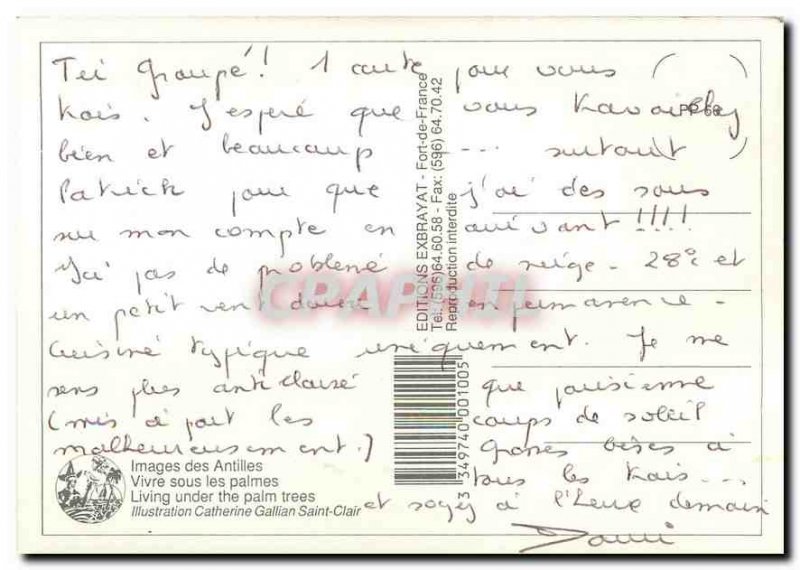 Tei Groupé! 1 carte pour vous ( )
trois. J'espère que vous travaillez
bien et beaucoup .... surtout
Patrick pour que j'ai des sous
sur mon compte en arrivant !!!!
J'ai pas de problème de neige - 28° et
un petit vent doux en permanence -
Cuisine typique uniquement. Je me
sens plus antillaise que parisienne
(mis à part les coups de soleil
malheureusement.) Grosses bises à
tous les trois...
et soyez à l'heure demain
EDITIONS EXBRAYAT - Fort-de-France
Tel: (596) 64.60.58 - Fax: (596) 64.70.42
Reproduction interdite
3 349740 001005
Images des Antilles
Vivre sous les palmes
Living under the palm trees
Illustration Catherine Gallian Saint-Clair